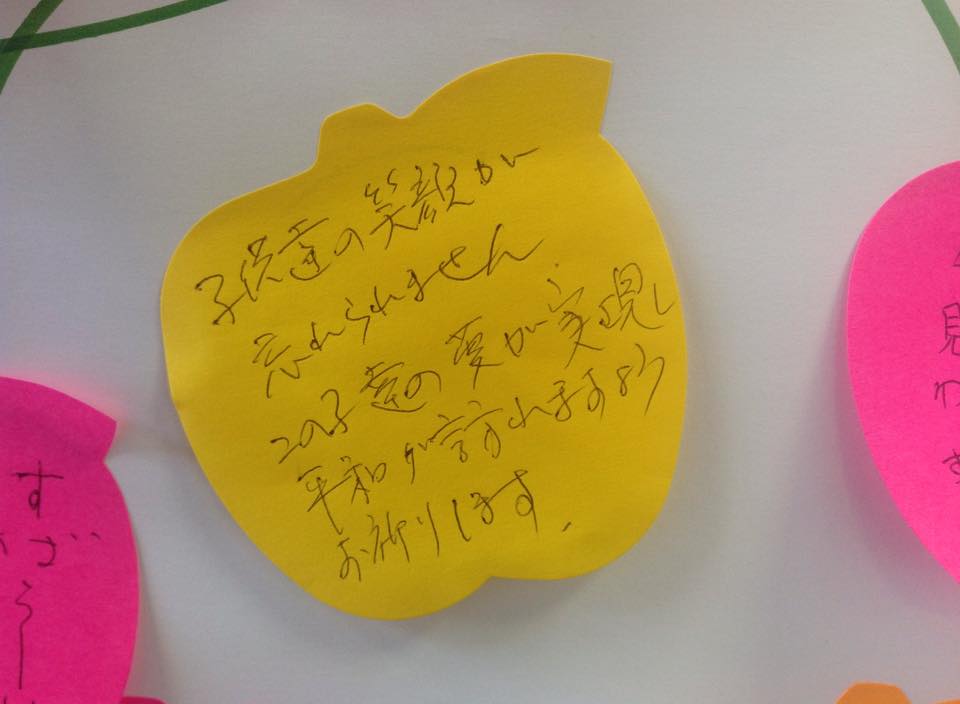 子供達の笑顔が
忘れられません
この子達の夢が実現し
平和が訪れますよう
お祈りします.
す
ざ
う
ー
見
わ
す